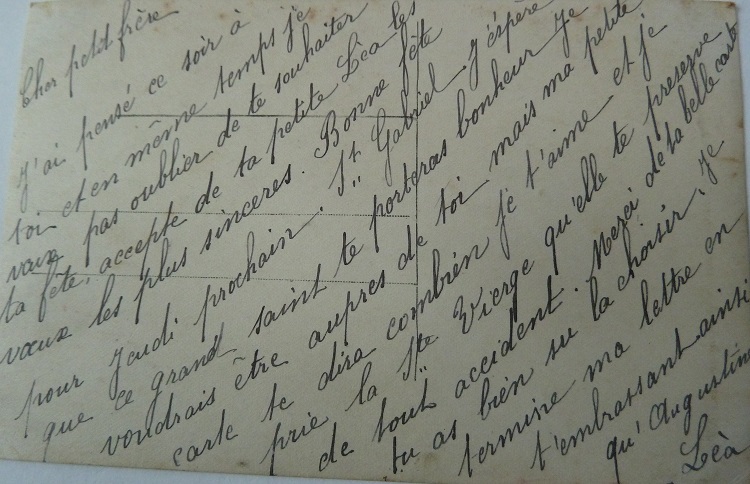 Cher petit frère
J'ai pensé ce soir à
toi et en même temps je
vaux pas oublier de te souhaiter
ta fête, accepte de ta petite Lèa les
vœux les plus sincères. Bonne fête
pour jeudi prochain. St Gabriel. J'éspère
que ce grand saint te porteras bonheur je
voudrais être aupres de toi mais ma petite
carte te dira combien je t'aime et je
prie la Ste Vierge qu'elle te preserve
de tout accident. Merci de ta belle carte
tu as bien su la choisir. Je
termine ma lettre en
t'embrassant ainsi
qu'Augustine
Lèa